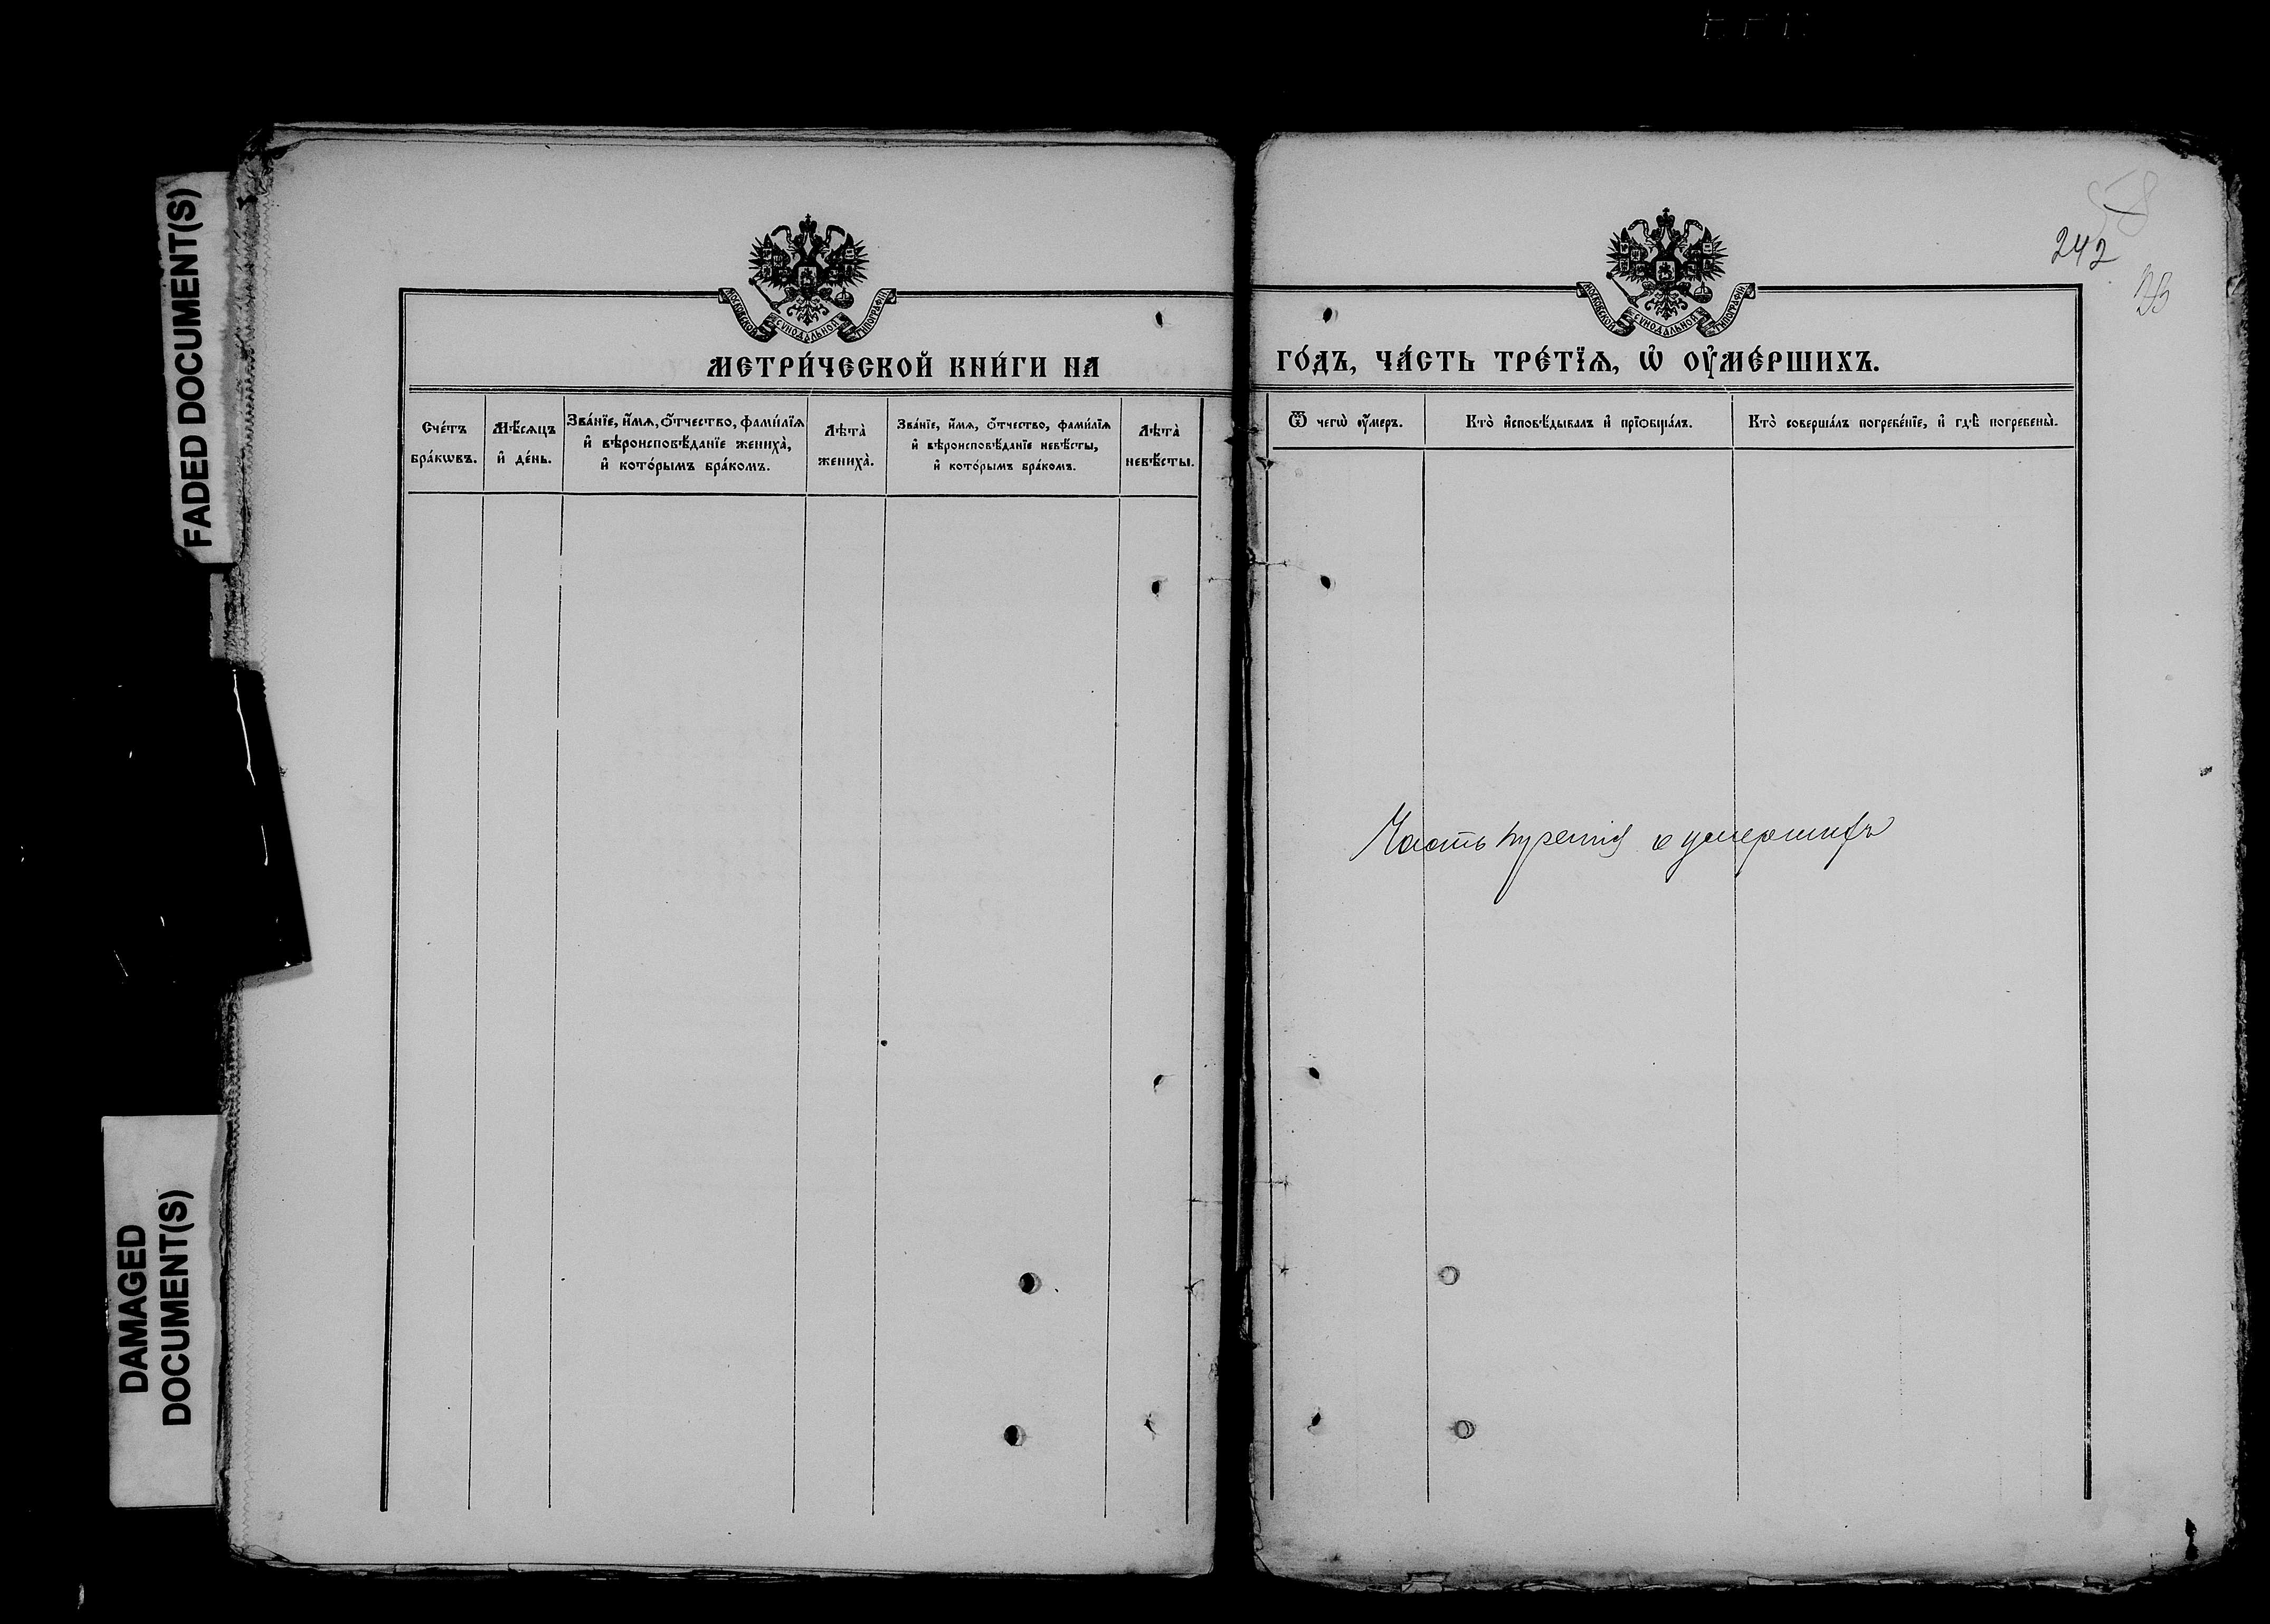 FADED DOCUMENT(S)
DAMAGED
DOCUMENT(S)
МОСКОВСКОЙ СѴНОДАЛЬНОЙ ТИПОГРАФІИ
МЕТРИ́ЧЕСКОЙ КНИ́ГИ НА
Сче́тъ
бра́кѡвъ.
Мѣ́сяцъ
и҆ де́нь.
Зва́нїе, и҆́мѧ, ѻ҆́тчество, фами́лїѧ
и҆ вѣроисповѣ́данїе жениха̀,
и҆ кото́рымъ бра́комъ.
Лѣта̀
жениха̀.
Зва́нїе, и҆́мѧ, ѻ҆́тчество, фами́лїѧ
и҆ вѣроисповѣ́данїе невѣ́сты,
и҆ кото́рымъ бра́комъ.
Лѣта̀
невѣ́сты.
242
МОСКОВСКОЙ СѴНОДАЛЬНОЙ ТИПОГРАФІИ
ГО́ДЪ, ЧА́СТЬ ТРЕ́ТЇѦ, Ѽ ОУ҆МЕ́РШИХЪ.
Ѿ чегѡ̀ оу҆́меръ.
Кто̀ и҆сповѣ́дывалъ и҆ прїѡбща́лъ.
Кто̀ соверша́лъ погребе́нїе, и҆ гдѣ̀ погребены̀.
Часть третія о умершихъ